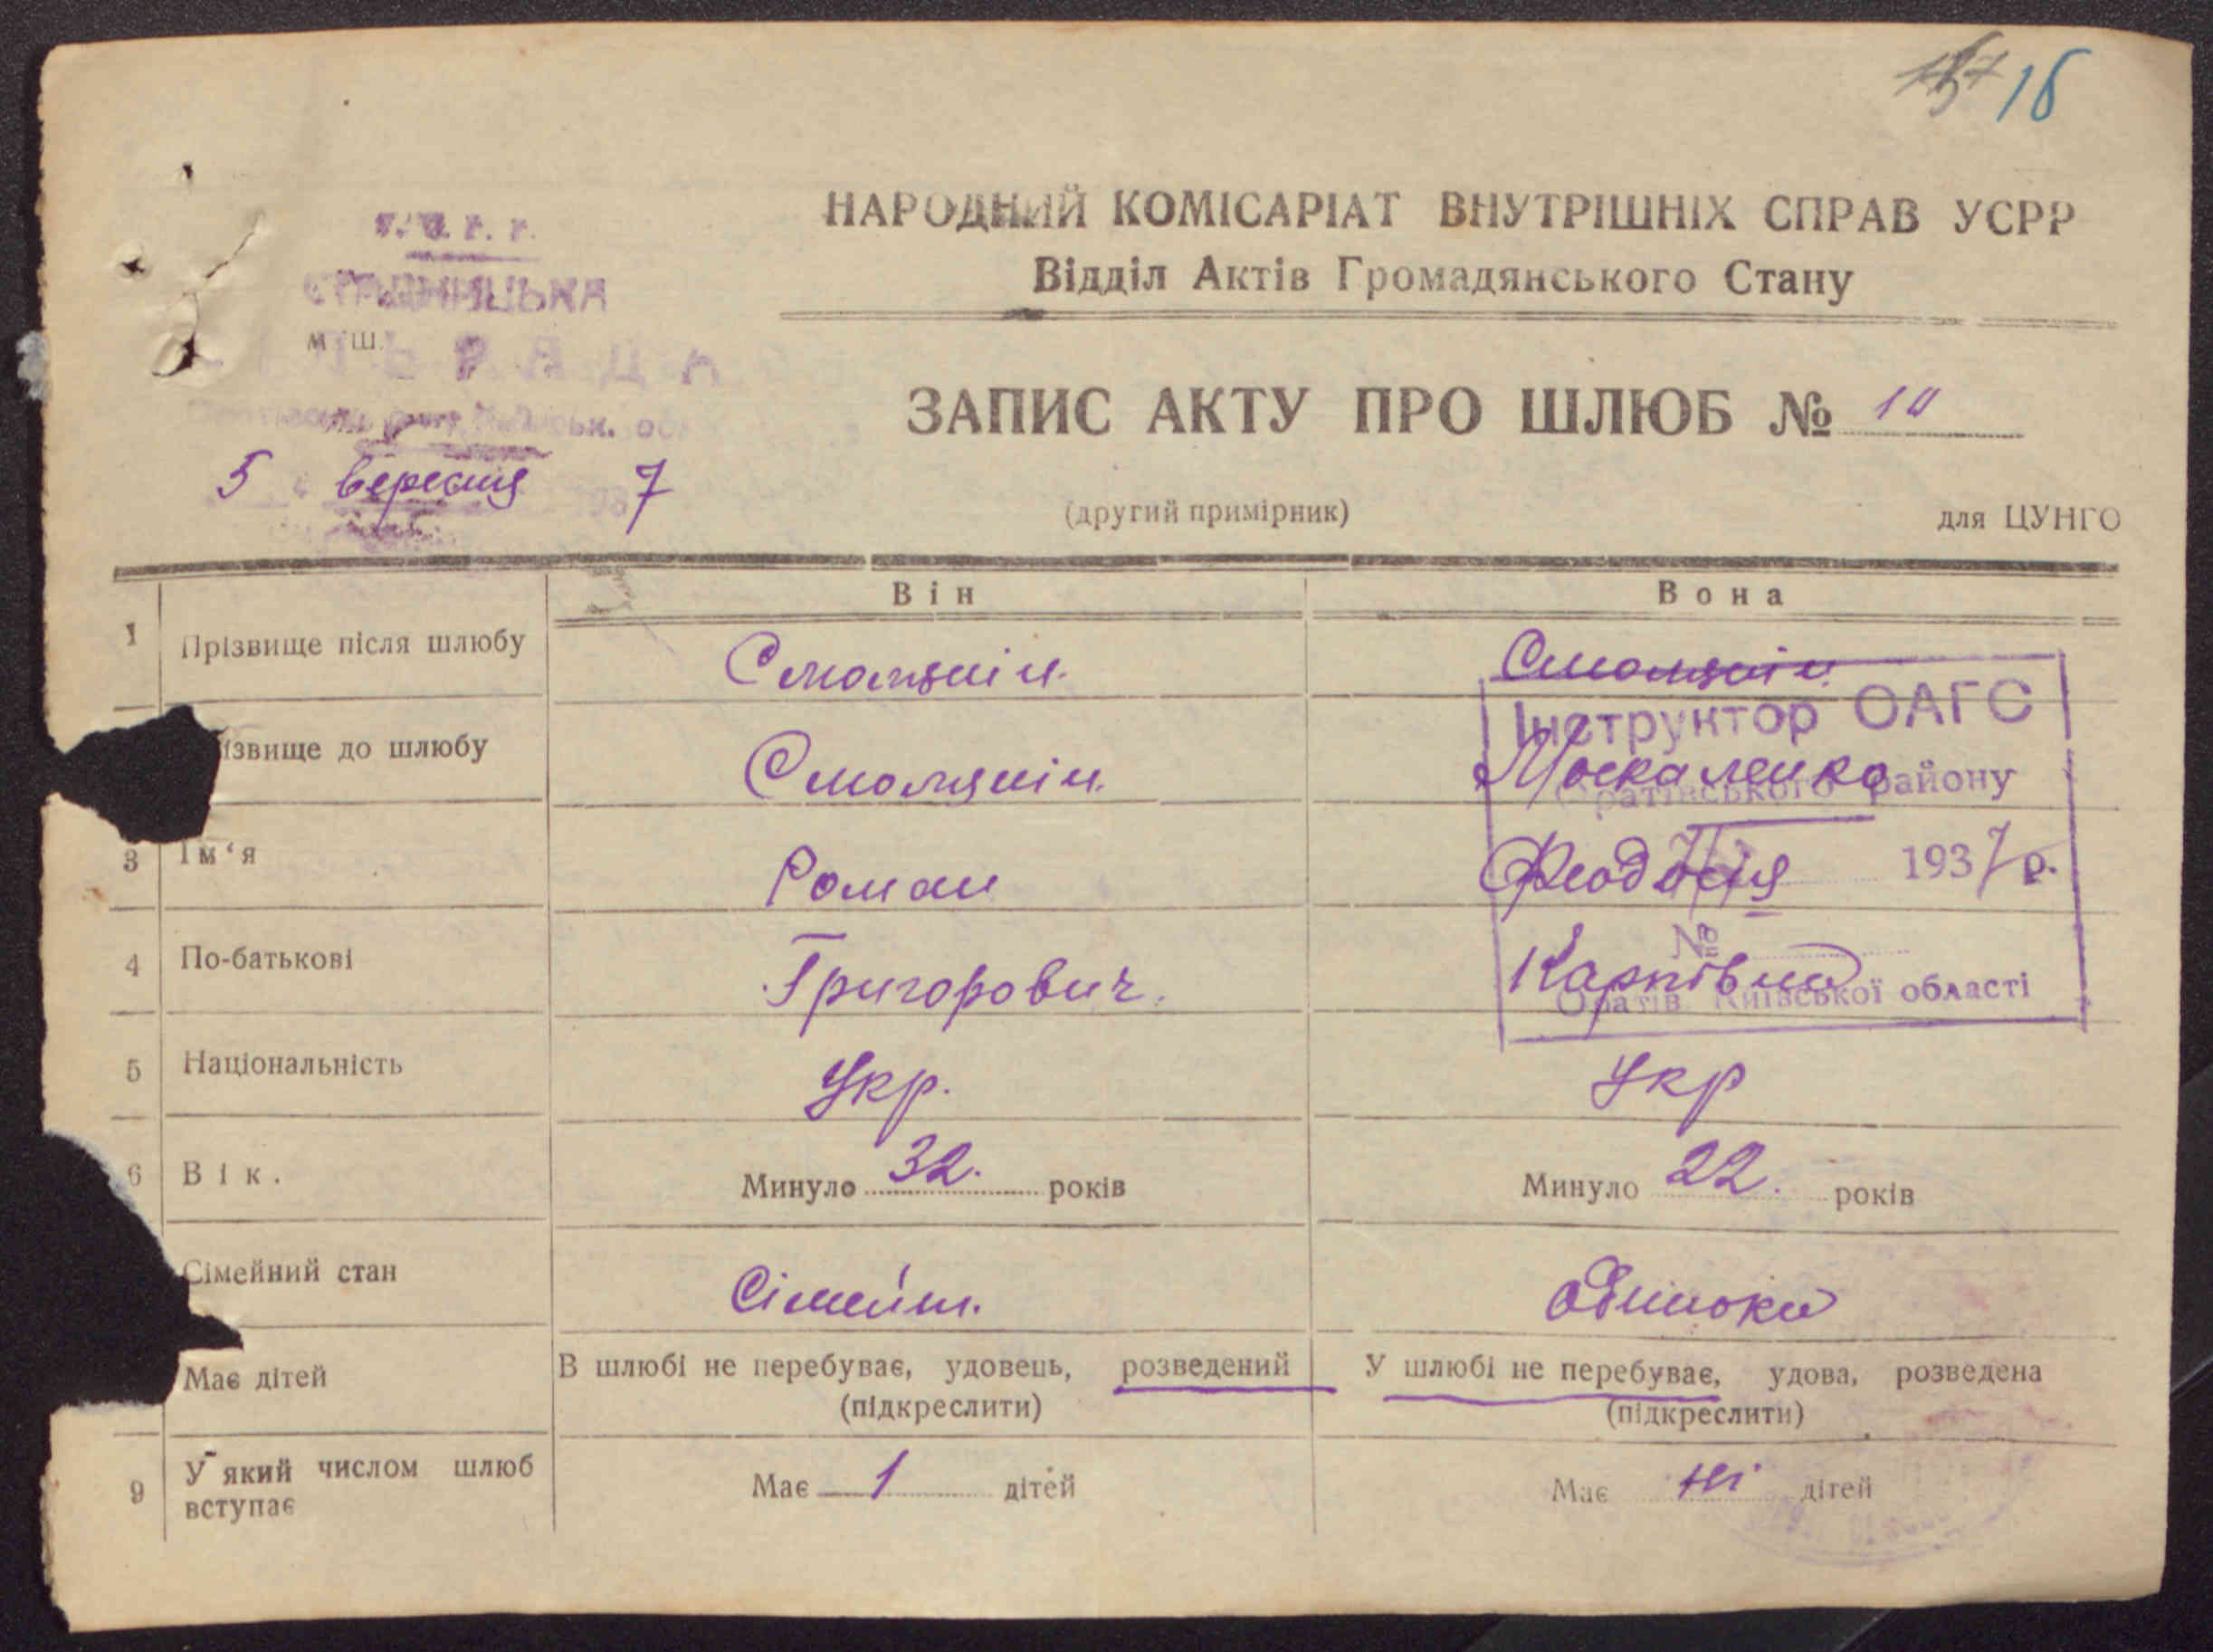 16
НАРОДНИЙ КОМІСАРІАТ ВНУТРІШНІХ СПРАВ УСРР
Відділ Актів Громадянського Стану
м. Ш.
ЗАПИС АКТУ ПРО ШЛЮБ № 10
5 вересня 1937
(другий примірник) для ЦУНГО
Він Вона
1 Прізвище після шлюбу Смолянін. Смолянін.
ізвище до шлюбу Смолянін. Москаленко
Інструктор ОАГС
Оратівського району
3 Ім‘я Роман Феодосія
1937 р.
№
4 По-батькові Григорович. Карпівна
Оратів Київської області
5 Національність Укр. Укр
6 Вік. Минуло 32. років Минуло 22. років
Сімейний стан Сімейн. одинока
Має дітей В шлюбі не перебуває, удовець, розведений У шлюбі не перебуває, удова, розведена
(підкреслити) (підкреслити)
9 У який числом шлюб вступає Має 1 дітей Має ні дітей